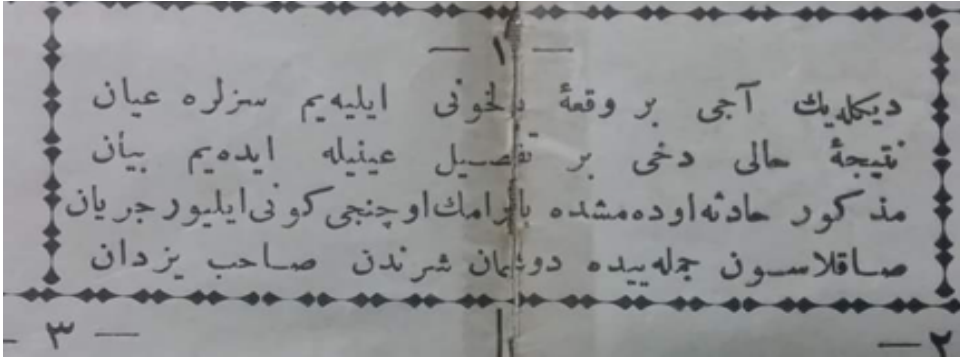 — ١ —
ديكله‌يك آجی بر وقعهٔ دلخونی ايليه‌يم سزلره عيان
نتيجهٔ حالی دخی بر تفصيل عينيله ايده‌يم بيأن
مذكور حادثه اوده‌مشده بايرامك اوچنجی كونی ايليور جريان
صاقلاسون جمله‌ييده دوشمان شرندن صاحب يزدان
— ٢
— ٣ —